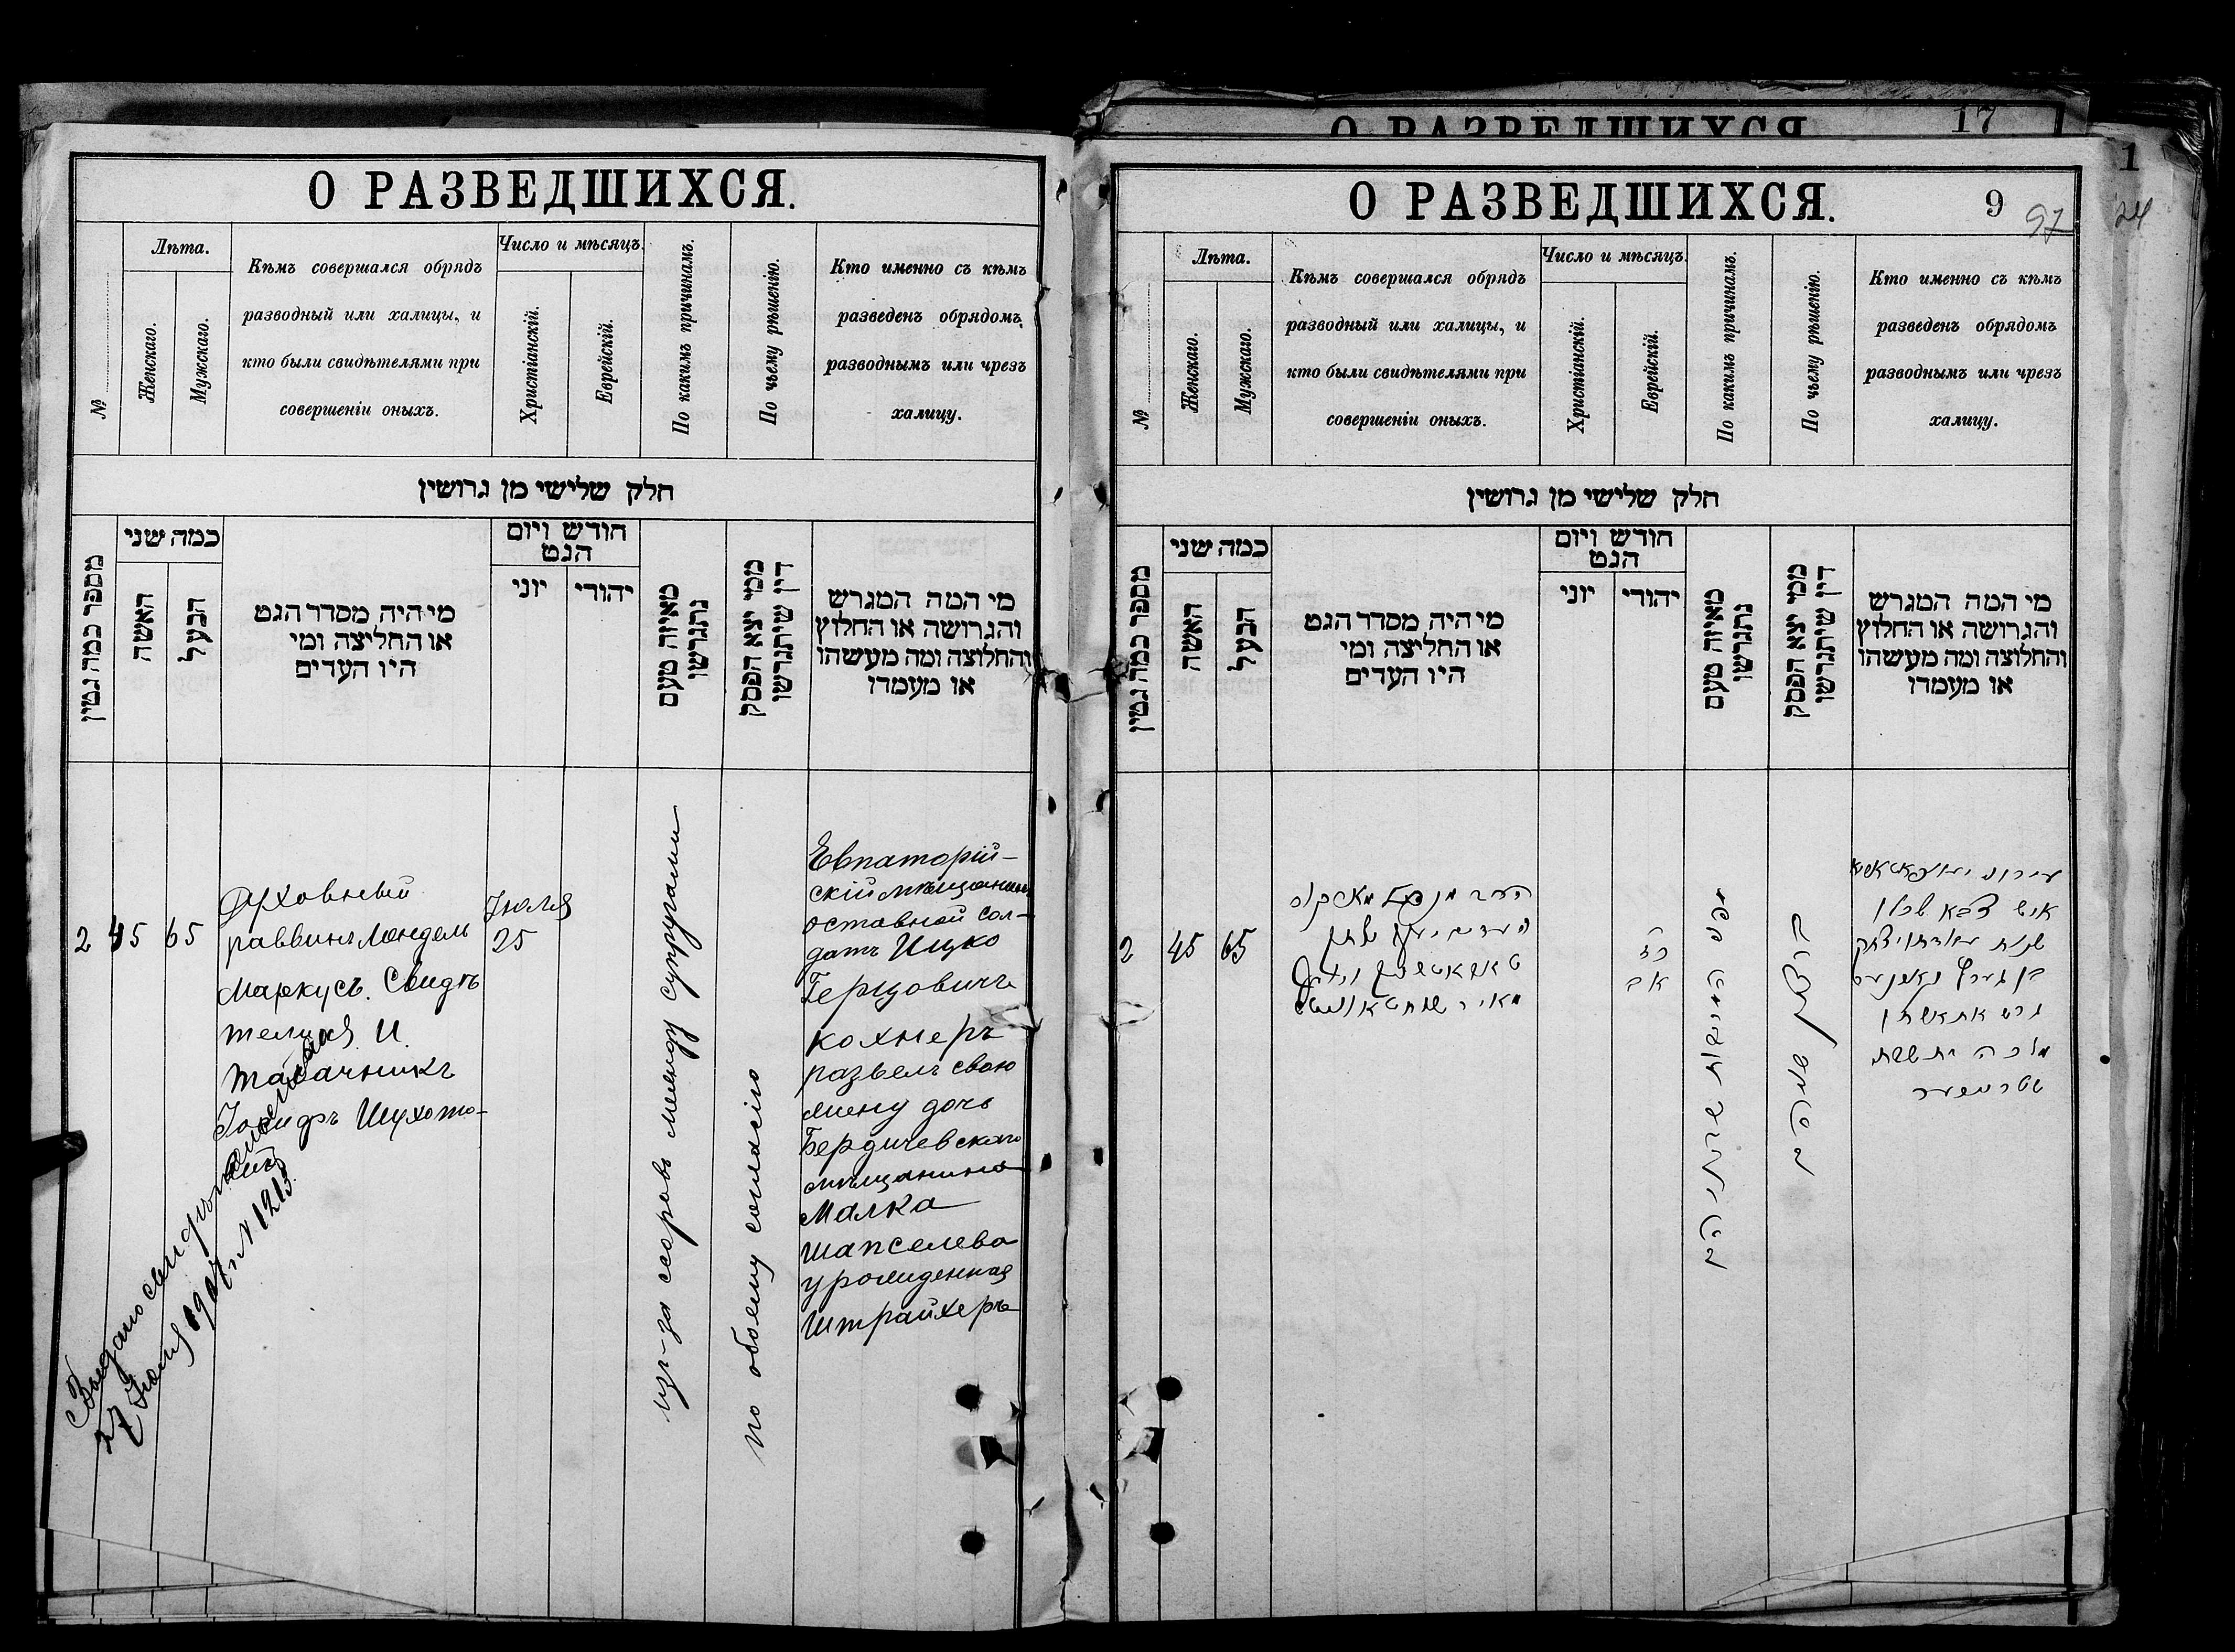 О РАЗВЕДШИХСЯ.
№
Лѣта.
Женскаго.
Мужскаго.
Кѣмъ совершался обрядъ
разводный или халицы, и
кто были свидѣтелями при
совершеніи оныхъ.
Число и мѣсяцъ.
Христіанскій.
Еврейскій.
По какимъ причинамъ.
По чьему рѣшенію.
Кто именно съ кѣмъ
разведенъ обрядомъ
разводнымъ или чрезъ
халицу.
חלק שלישי מן גרושין
מספר כמה גטין
כמה שני
האשה
הבעל
מי היה מסדר הגט
או החליצה ומי
היו העדים
חודש ויום
הגט
יוני
יהודי
מאיזה טעם
נתגרשו
ממי יצא הפסק
דין שיתגרשו
מי המה המגרש
והגרושה או החלוץ
והחלוצה ומה מעשהו
או מעמדו
2
45
65
Духовный
раввинъ Мендель
Маркусъ. Свидѣ
тели: И.
Табачникъ
Іосифъ Шухото-
Іюля
25
изъ-за ссоръ между супругами
по обоему согласію
Евпаторій-
скій мѣщанинъ
оставной сол-
датъ Ицко
Герцовичъ
Кохнеръ
развелъ свою
жену дочь
Бердичевскаго
мѣщанина
Малка
Шапселева
урожденная
Штрайхеръ
27 Іюля 1907 г. N 1213.
17
О РАЗВЕДШИХСЯ
1
24
О РАЗВЕДШИХСЯ.
9
97
№
Лѣта.
Женскаго.
Мужскаго.
Кѣмъ совершался обрядъ
разводный или халицы, и
кто были свидѣтелями при
совершеніи оныхъ.
Число и мѣсяцъ.
Христіанскій.
Еврейскій.
По какимъ причинамъ.
По чьему рѣшенію.
Кто именно съ кѣмъ
разведенъ обрядомъ
разводнымъ или чрезъ
халицу.
חלק שלישי מן גרושין
מספר כמה גטין
כמה שני
האשה
הבעל
מי היה מסדר הגט
או החליצה ומי
היו העדים
חודש ויום
הגט
יוני
יהודי
מאיזה טעם
נתגרשו
ממי יצא הפסק
דין שיתגרשו
מי המה המגרש
והגרושה או החלוץ
והחלוצה ומה מעשהו
או מעמדו
2
45
65
הרב מנדל מארקוס
העדים
מאיר
אב
עירוני
איש צבא
בן הערץ
גרש את אשתו
מלכה